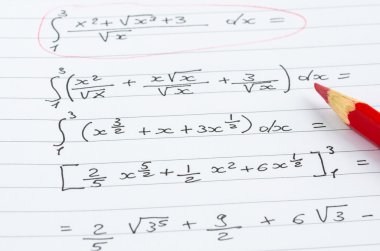 ∫₁³ (x² + √x³ + 3)/√x dx =
∫₁³ (x²/√x + x√x/√x + 3/√x) dx =
∫₁³ (x^(3/2) + x + 3x^(1/2)) dx =
[2/5 x^(5/2) + 1/2 x² + 6x^(1/2)]₁³ =
= 2/5 √3⁵ + 9/2 + 6√3 −